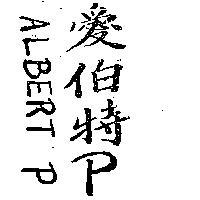 愛伯特P
ALBERT P